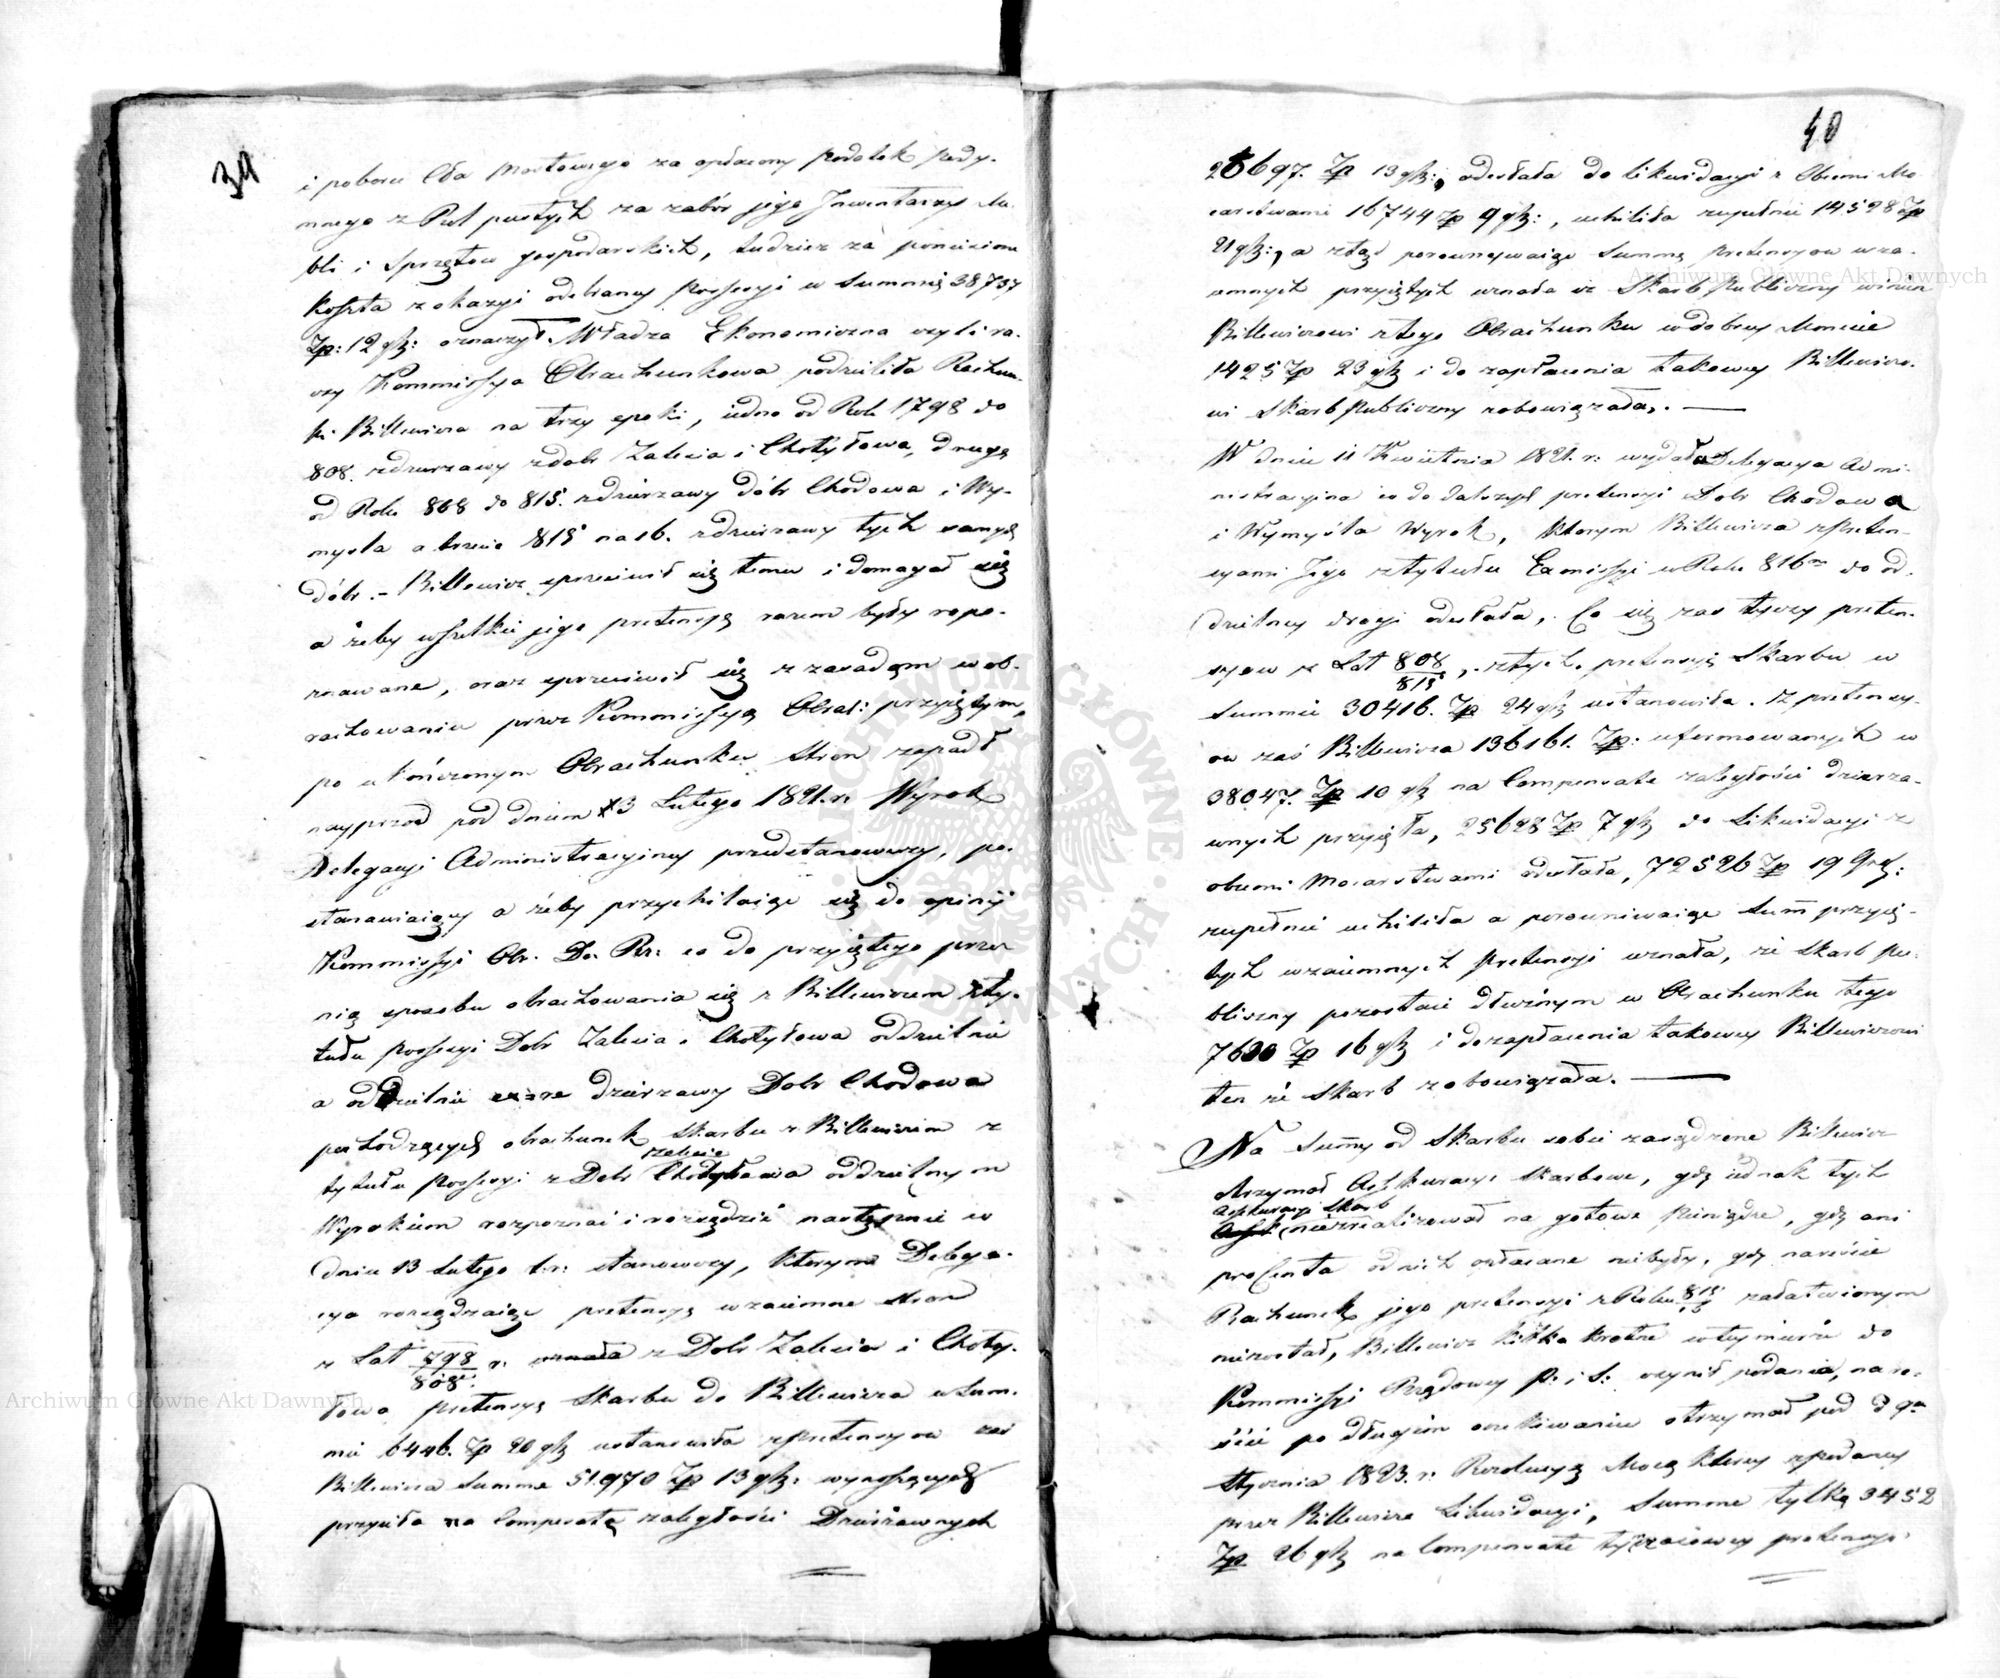 39
i poboru Cła Mostowego za opłacony podatek pody-
mnego z Pul pustych za zabór jego Inwentarzy Me-
bli i Sprzętow gospodarskich, tudzież za poniesione
koszta z okazyi odebraney possessyi w Summie 38737
Zp: 12 gß: oznaczył. Władza Ekonomiczna czyli ra-
czy Kommissya Obrachunkowa podzieliła Rachun-
ki Billewicza na trzy epoki, iedne od Roku 1798 do
808. z dzierzawy z dobr Zalesia i Chotyłowa, drugą
od Roku 808 do 815. z dzierzawy dóbr Chodowa i Wy-
mysla a trzecie 815 na 16. z dzierzawy tych samych
dóbr. – Billewicz sprzeciwił się temu i domagał się
a żeby wszelkie jego pretensye razem były rospo-
znawane, oraz sprzeciwił się zasadom w ob-
rachowaniu przez Kommissyą Obrac: przyiętym,
po ukończonym Obrachunku stron zapadł
nayprzod pod dniem 13 Lutego 1821. r. Wyrok
Delegacyi Administracyiney przedstanowczy, po-
stanawiaiący a żeby przychilaiąc się do opinij
Kommissyi Obr. Do. Pr: co do przyiętego przez
nią sposobu obrachowania się z Billewiczem z ty-
tułu possessyi Dobr Zalesia i Chotyłowa oddzielnie
a oddzielnie dzierzawy Dobr Chodowa
pochodzących obrachunek Skarbu z Billewiczem z
Zalesie
tytułu possessyi z Dobr Chotyłowa oddzielnym
Wyrokiem rozpoznać i rozsądzić następnie w
dniu 13 Lutego t. r: stanowczy, ktorym Delega-
cya rozsądzaiąc pretensye wzaiemne stron
z Lat 798/808 r. z Dobr Zalesia i Choty-
łowa pretensyą Skarbu do Billewicza w Sum-
mie 6446. Zp 20 gß ustanowiła z pretensyow zaś
Billewicza Summe 51970 Zp 13 gß: wynoszących
przyieła na Compensatę zaległości Dzierżawnych
40
697. Zp 13 gß:, odesłała do likwidacyi z Obcemi Mo-
carstwami 16744 Zp 9 gß:, uchiliła zupełnie 14528 Zp
21 gß:, a ztąd porownywaiąc Summę pretensyow wza-
iemnych przyiętych uznała iż Skarb Publiczny winien
Billewiczowi z tego Obrachunku w dobrey Monecie
1425 Zp 23 gß i do zapłacenia takowey Billewiczo-
wi Skarb Publiczny zobowiązała. —
W dniu 11 Kwietnia 1821. r: wydała Delegacya Admi-
nistracyina co do dalszych pretensyi Dobr Chodowa
i Wymysla Wyrok, ktorym Billewicza z preten-
syami Jego z tytułu Exmissyi w Roku 816m do od-
dzielney drogi odesłała, Co się zas tyczy preten-
syow z Lat 808/815, z tych pretensyą Skarbu w
Summie 30416. Zp 24 gß ustanowiła. Z pretensy-
ow zaś Billewicza 136161. Zp: uformowanych w
38047. Zp 10 gß na Compensate zaległości dzierza-
wnych przyięła, 25628 Zp 7 gß do Likwidacyi z
obcemi Mocarstwami odesłała, 72526 Zp 19 Gß:
zupełnie uchiliła a porowniwaiąc Sum przyię-
tych wzaiemnych pretensyi uznała, że Skarb pu-
bliczny pozostaie dłużnym w Obrachunku tego
7630 Zp 16 gß i do zapłacenia takowey Billewiczowi
ten że Skarb zobowiązała. —
Na Summy od Skarbu sobie zasądzone Billewicz
otrzymał Asekuracye Skarbowe, gdy iednak tych
Asekuracyi Skarb
nie zrealizował na gotowe pieniądze, gdy ani
procenta od nich opłacane niebyły, gdy nareście
Rachunek jego pretensyi z Roku 815/16 załatwionym
niezostał, Billewicz kilka krotne w tey mierze do
Kommissyi Rządowey P: i S: czynił podania, nare-
ście po długim oczekiwaniu otrzymał pod d 9m
Stycznia 1823. r. Rezolucyą Mocą ktorey z podaney
przez Billewicza Likwidacyi, Summe tylko 3452
Zp 26 gß na Compensate pretensyi
Archiwum Główne Akt Dawnych
Archiwum Główne Akt Dawnych
ARCHIWUM GŁÓWNE AKT DAWNYCH